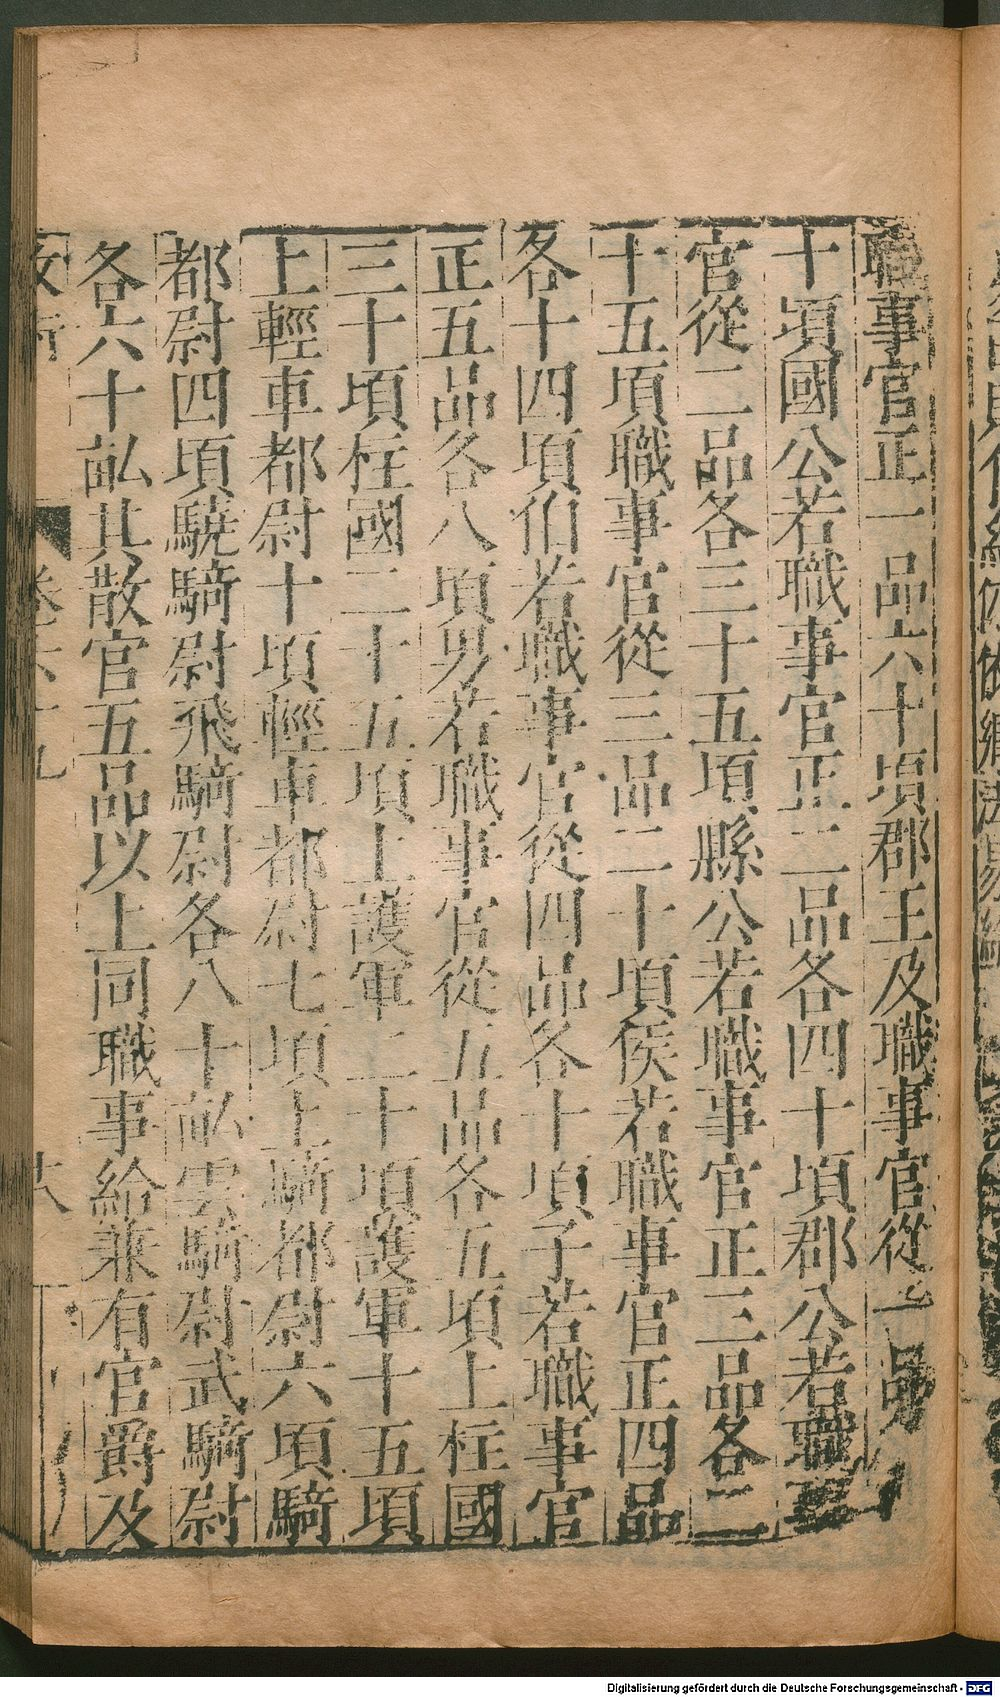 職事官正一品六十頃郡王及職事官從一品
十頃國公若職事官正二品各四十頃郡公若職事
官從二品各三十五頃縣公若職事官正三品各二
十五頃職事官從三品二十頃侯若職事官正四品
各十四頃伯若職事官從四品各十頃子若職事官
正五品各八頃男若職事官從五品各五頃上柱國
三十頃柱國二十五頃上護軍二十頃護軍十五頃
上輕車都尉十頃輕車都尉七頃上騎都尉六頃騎
都尉四頃驍騎尉飛騎尉各八十畝雲騎尉武騎尉
各六十畝其散官五品以上同職事給兼有官爵及
卷六十九
Digitalisierung gefördert durch die Deutsche Forschungsgemeinschaft - DFG